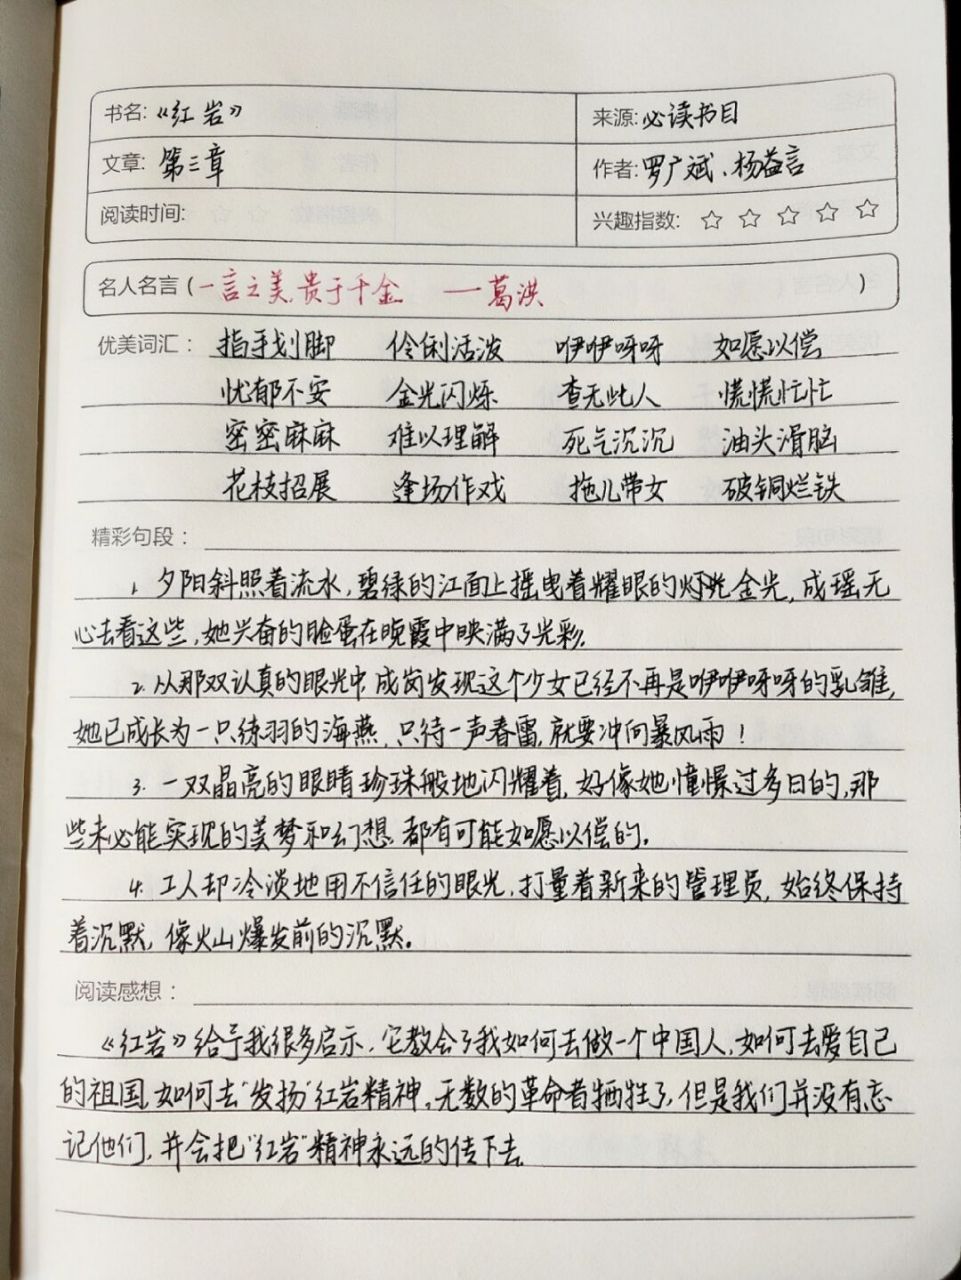 书名:《红岩》 来源:必读书目
文章: 第三章 作者:罗广斌、杨益言
阅读时间: 兴趣指数: ☆ ☆ ☆ ☆ ☆
名人名言(一言之美,贵于千金 —葛洪 )
优美词汇: 指手划脚 伶俐活泼 咿咿呀呀 如愿以偿
忧郁不安 金光闪烁 查无此人 慌慌忙忙
密密麻麻 难以理解 死气沉沉 油头滑脑
花枝招展 逢场作戏 拖儿带女 破铜烂铁
精彩句段:
1. 夕阳斜照着流水,碧绿的江面上摇曳着耀眼的金光,成瑶无
心去看这些,她兴奋的脸蛋在晚霞中映满了光彩.
2. 从那双认真的眼光中,成岗发现这个少女已经不再是咿咿呀呀的乳雏,
她已成长为一只练羽的海燕,只待一声春雷,就要冲向暴风雨!
3. 一双晶亮的眼睛珍珠般地闪耀着,好像她憧憬过多日的,那
些未必能实现的美梦和幻想,都有可能如愿以偿的。
4. 工人却冷淡地用不信任的眼光,打量着新来的管理员,始终保持
着沉默,像火山爆发前的沉默。
阅读感想:
《红岩》给予我很多启示,它教会了我如何去做一个中国人,如何去爱自己
的祖国,如何去"发扬"红岩精神。无数的革命者牺牲了,但是我们并没有忘
记他们,并会把"红岩"精神永远的传下去.